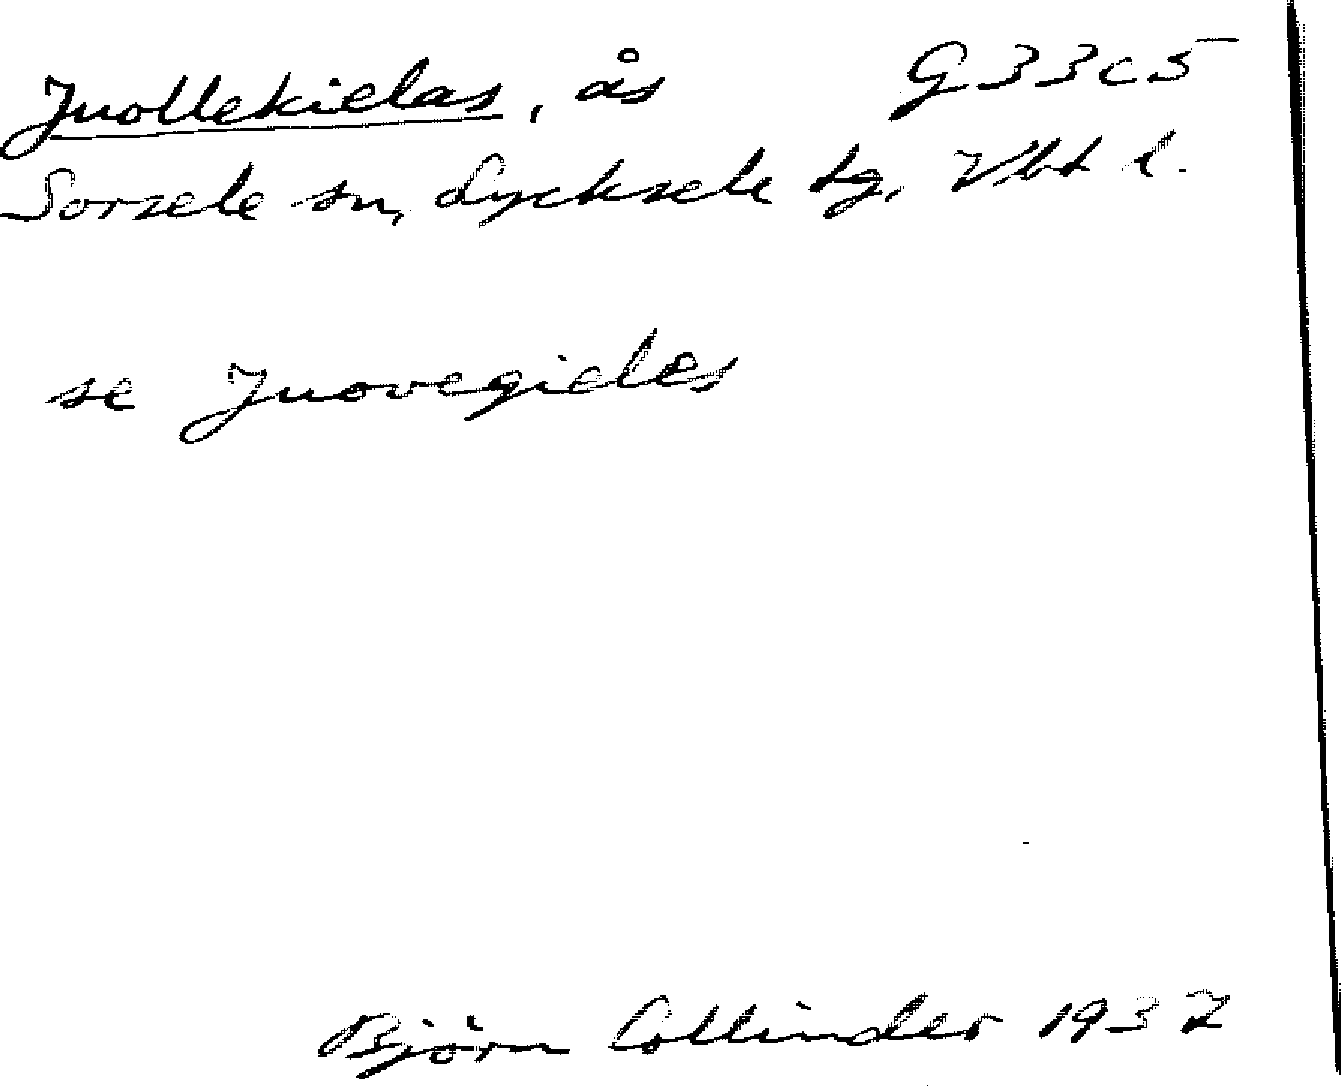 Juollekielas, ås G33c5
Sorsele sn, Lycksele tg, Vbt l.
se Juovegieles
Björn Collinder 1937